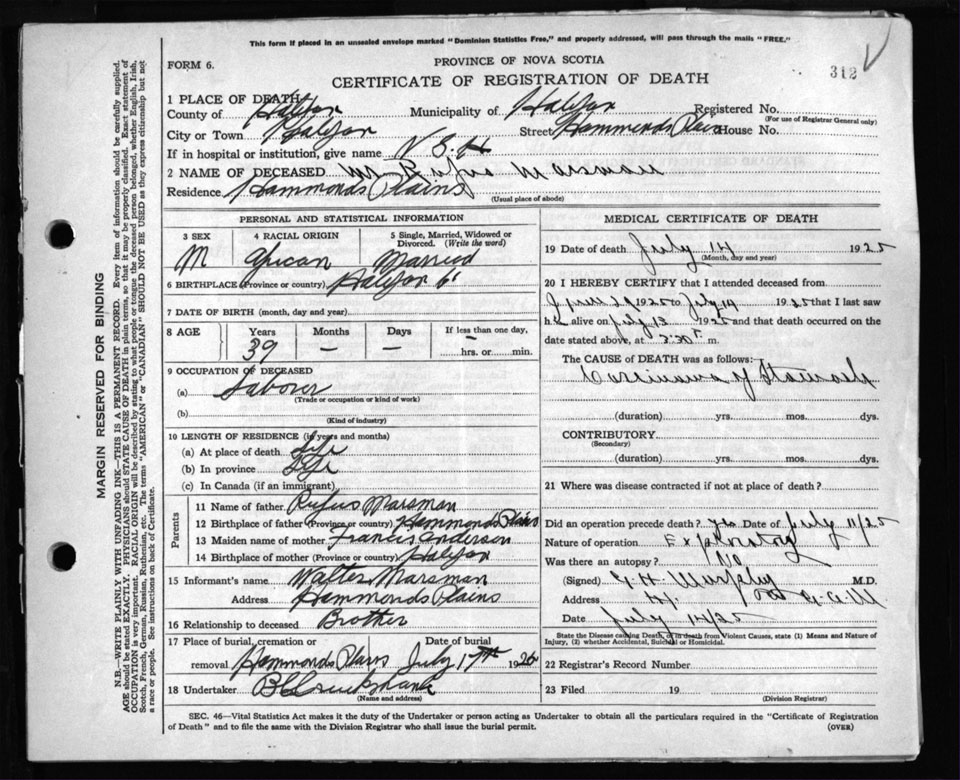 This form if placed in an unsealed envelope marked "Dominion Statistics Free," and properly addressed, will pass through the mails "FREE."
FORM 6.
PROVINCE OF NOVA SCOTIA
312
CERTIFICATE OF REGISTRATION OF DEATH
1 PLACE OF DEATH
County of Halifax Municipality of Halifax Registered No.
(For use of Registrar General only)
City or Town Halifax Street Hammonds Plains House No.
If in hospital or institution, give name V. G. H
2 NAME OF DECEASED Mr Rufus Marsman
Residence Hammonds Plains
(Usual place of abode)
PERSONAL AND STATISTICAL INFORMATION
3 SEX 4 RACIAL ORIGIN 5 Single, Married, Widowed or
Divorced. (Write the word)
M African Married
6 BIRTHPLACE (Province or country) Halifax Co
7 DATE OF BIRTH (month, day and year)
8 AGE Years Months Days If less than one day,
39 — — hrs. or min.
9 OCCUPATION OF DECEASED
(a) Laborer
(Trade or occupation or kind of work)
(b)
(Kind of industry)
10 LENGTH OF RESIDENCE (in years and months)
(a) At place of death Life
(b) In province Life
(c) In Canada (if an immigrant)
Parents
11 Name of father Rufus Marsman
12 Birthplace of father (Province or country) Hammonds Plains
13 Maiden name of mother Francis Anderson
14 Birthplace of mother (Province or country) Halifax
15 Informant's name Walter Marsman
Address Hammonds Plains
16 Relationship to deceased Brother
17 Place of burial, cremation or Date of burial
removal Hammonds Plains July 17th 1925
18 Undertaker B Cruikshank
(Name and address)
MEDICAL CERTIFICATE OF DEATH
19 Date of death July 14 1925
(Month, day and year)
20 I HEREBY CERTIFY that I attended deceased from
1925 to July 14 1925 that I last saw
h alive on July 13 1925 and that death occurred on
date stated above, at 3:30 m.
The CAUSE OF DEATH was as follows:
Carcinoma of Stomach
(duration) yrs. mos. dys.
CONTRIBUTORY
(Secondary)
(duration) yrs. mos. dys.
21 Where was disease contracted if not at place of death?
Did an operation precede death? Yes Date of July 11/25
Nature of operation Exploratory
Was there an autopsy? No
(Signed) G. H. Murphy M.D.
Address
Date July 14/25
State the Disease causing Death, or in death from Violent Causes, state (1) Means and Nature of
Injury, (2) whether Accidental, Suicidal or Homicidal.
22 Registrar's Record Number
23 Filed 19
(Division Registrar)
SEC. 46—Vital Statistics Act makes it the duty of the Undertaker or person acting as Undertaker to obtain all the particulars required in the "Certificate of Registration
of Death" and to file the same with the Division Registrar who shall issue the burial permit. (OVER)
MARGIN RESERVED FOR BINDING
N.B.—WRITE PLAINLY WITH UNFADING INK—THIS IS A PERMANENT RECORD. Every item of information should be carefully supplied.
AGE should be stated EXACTLY. PHYSICIANS should STATE CAUSE OF DEATH in plain terms, so that it may be properly classified. Exact statement of
OCCUPATION is very important. RACIAL ORIGIN will be described by stating to what people or tongue the deceased person belonged, whether English, Irish,
Scotch, French, German, Russian, Ruthenian, etc. The terms "AMERICAN" or "CANADIAN" SHOULD NOT BE USED as they express citizenship but not
a race or people. See instructions on back of Certificate.